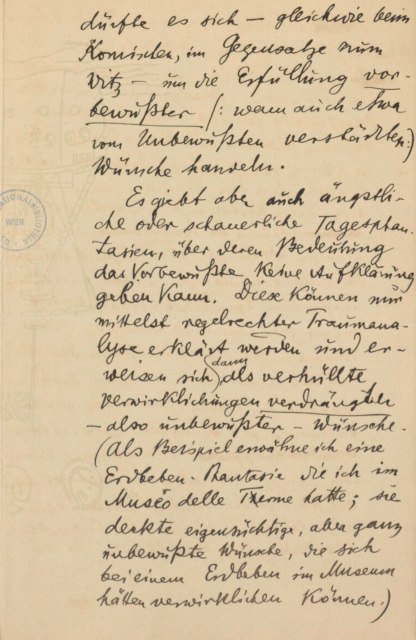 dürfte es sich — gleichwie beim
Komischen, im Gegensatze zum
Witz — um die Erfüllung vor-
bewußter (: wenn auch etwa
vom Unbewußten verstärkten :)
Wünsche handeln.
Es giebt aber auch ängstli-
che oder schauerliche Tagesphan-
tasien, über deren Bedeutung
das Vorbewußte keine Aufklärung
geben kann. Diese können nur
mittelst regelrechter Traumana-
lyse erklärt werden und er-
weisen sich dann als verhüllte
Verwirklichungen verdrängter
— also unbewußter — Wünsche.
(Als Beispiel erwähne ich eine
Erdbeben-Phantasie die ich im
Museo delle Terme hatte; sie
deckte eigensüchtige, aber ganz
unbewußte Wünsche, die sich
bei einem Erdbeben im Museum
hätten verwirklichen können.)
WIEN